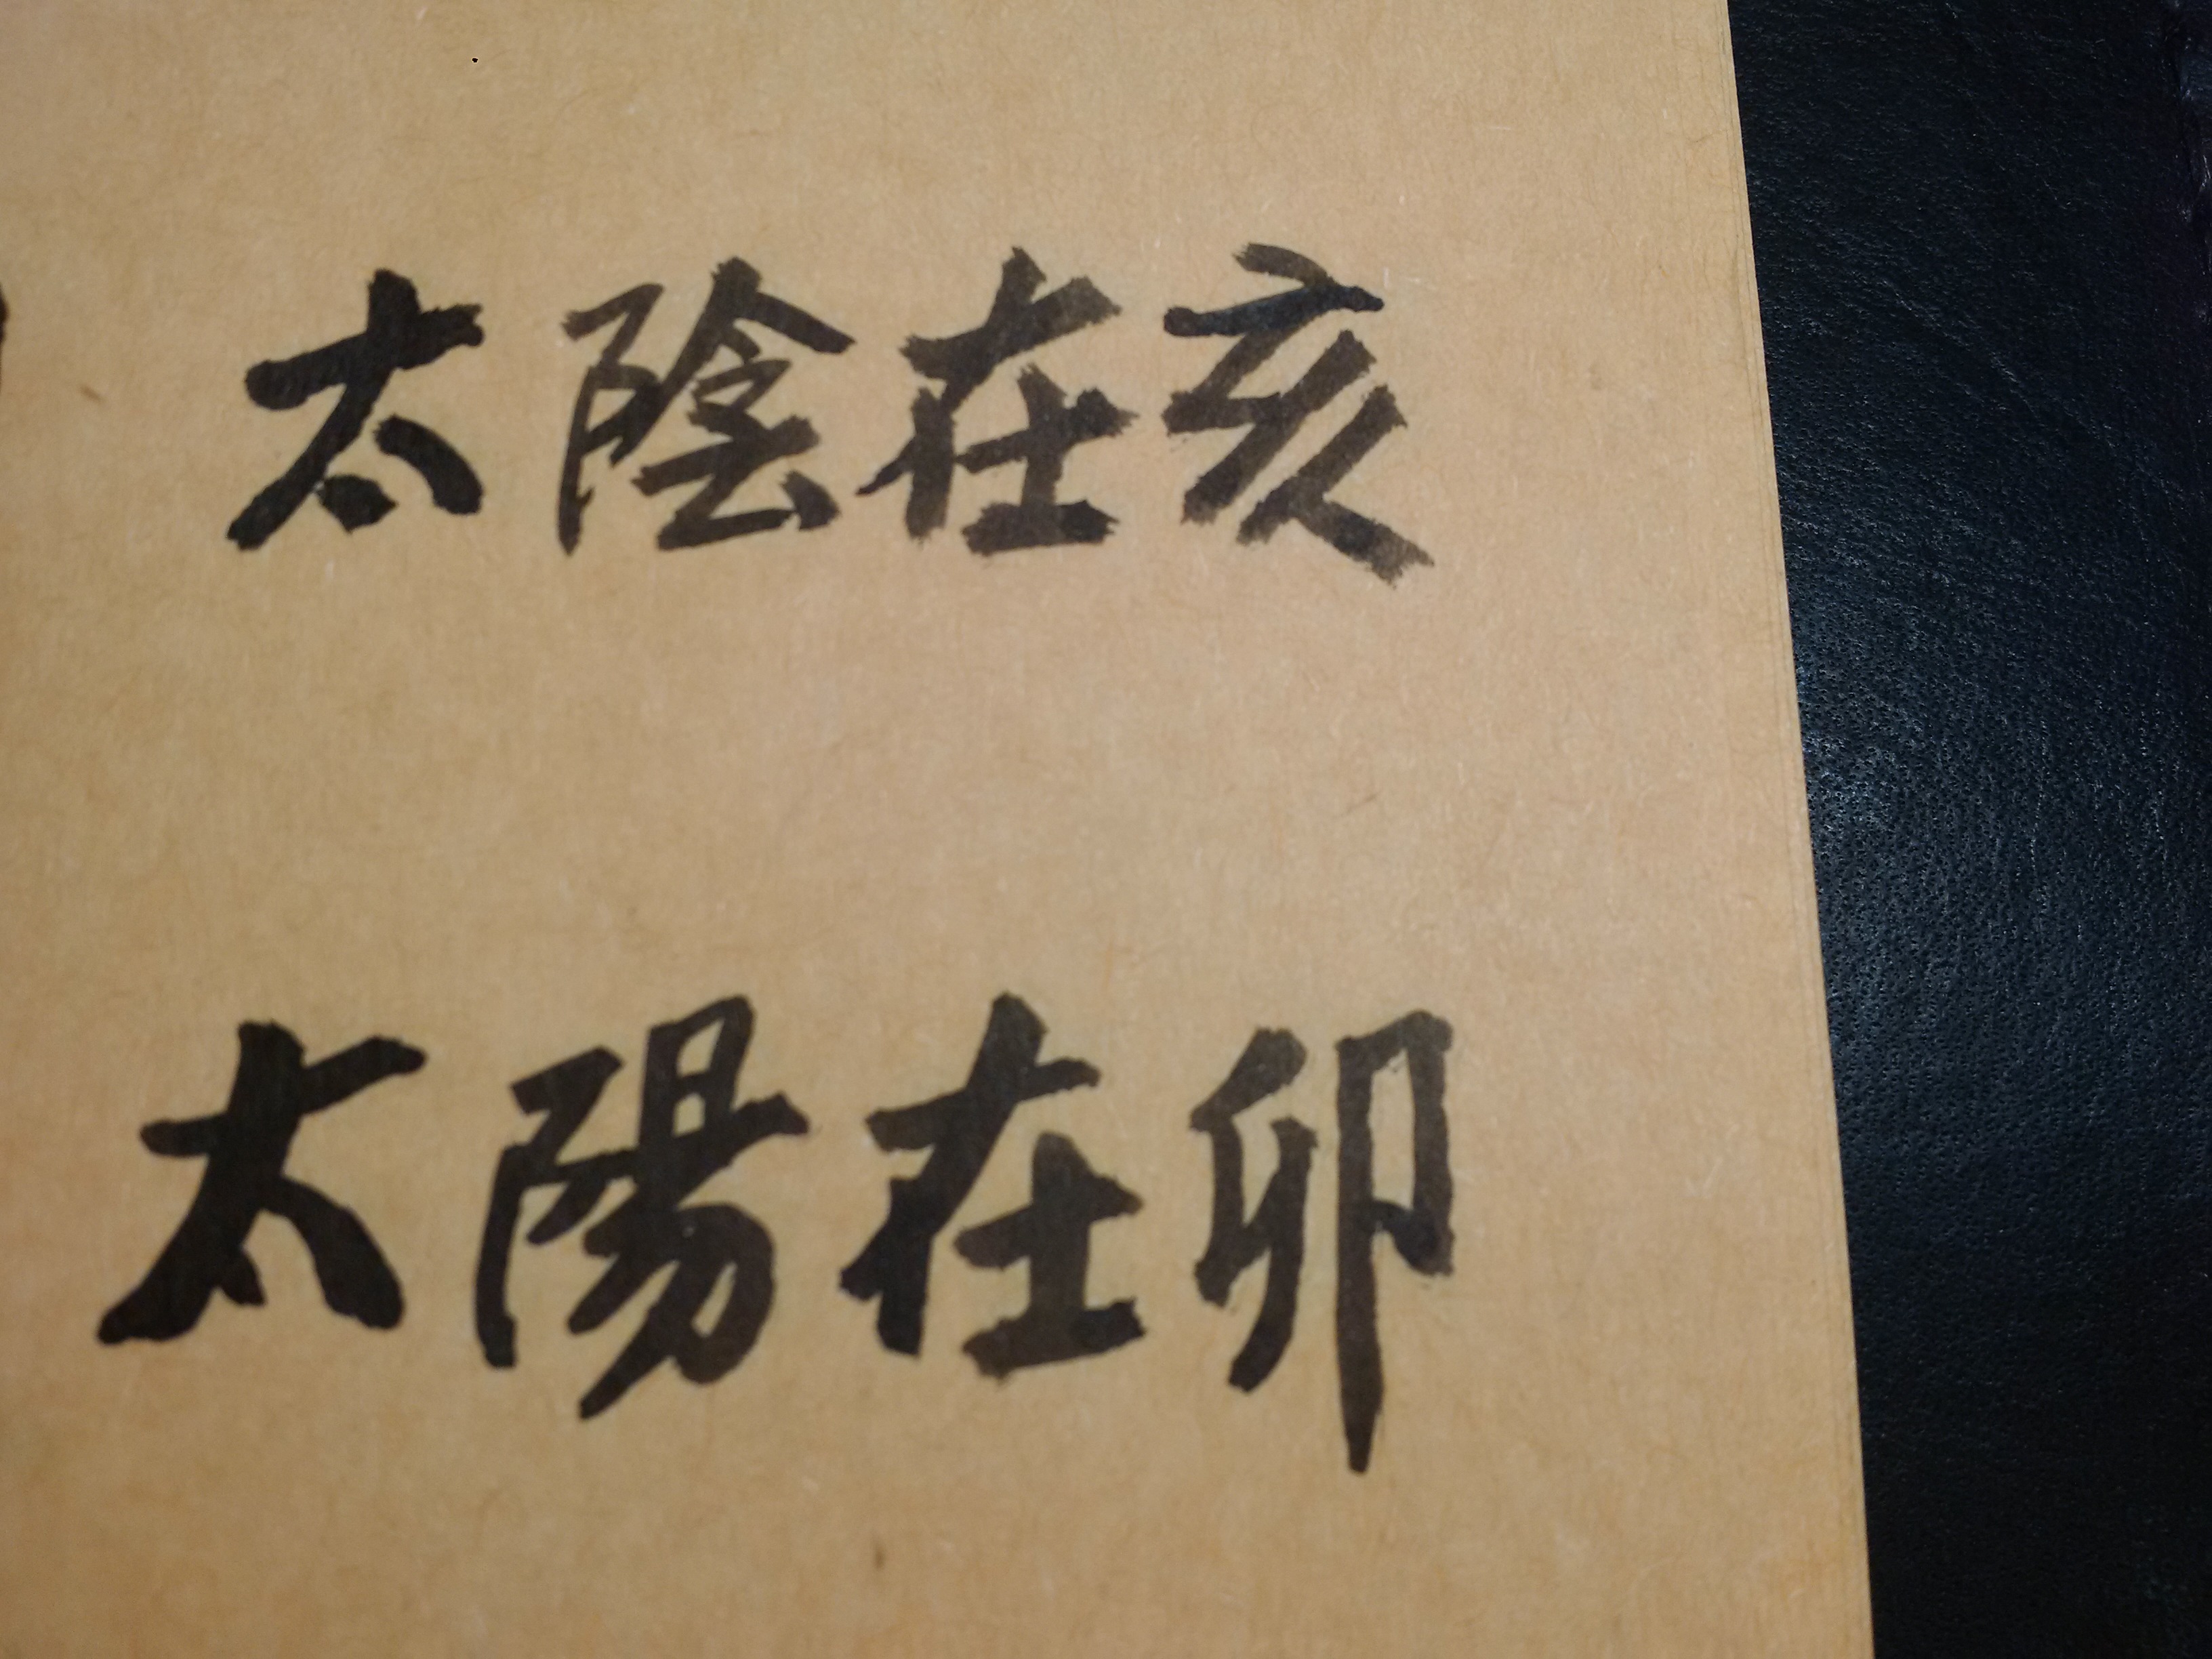 太陰在亥
太陽在卯